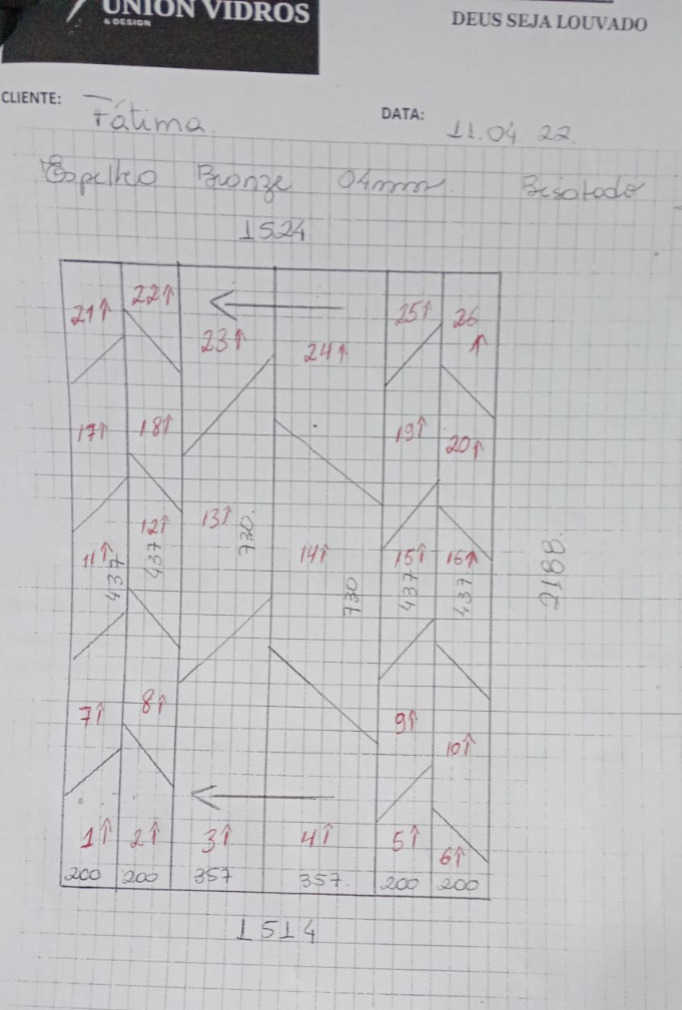 UNION VIDROS
& DESIGN
DEUS SEJA LOUVADO
CLIENTE: Fátima.
DATA: 11.04.22.
Espelho Bronze 04mm Bisotado
1524
21↑ 22↑ 23↑ 24↑ 25↑ 26↑
17↑ 18↑ 19↑ 20↑
11↑ 12↑ 13↑ 14↑ 15↑ 16↑
437 437 730. 730 437 437
2188.
7↑ 8↑ 9↑ 10↑
1↑ 2↑ 3↑ 4↑ 5↑ 6↑
200 200 357 357. 200 200
1514